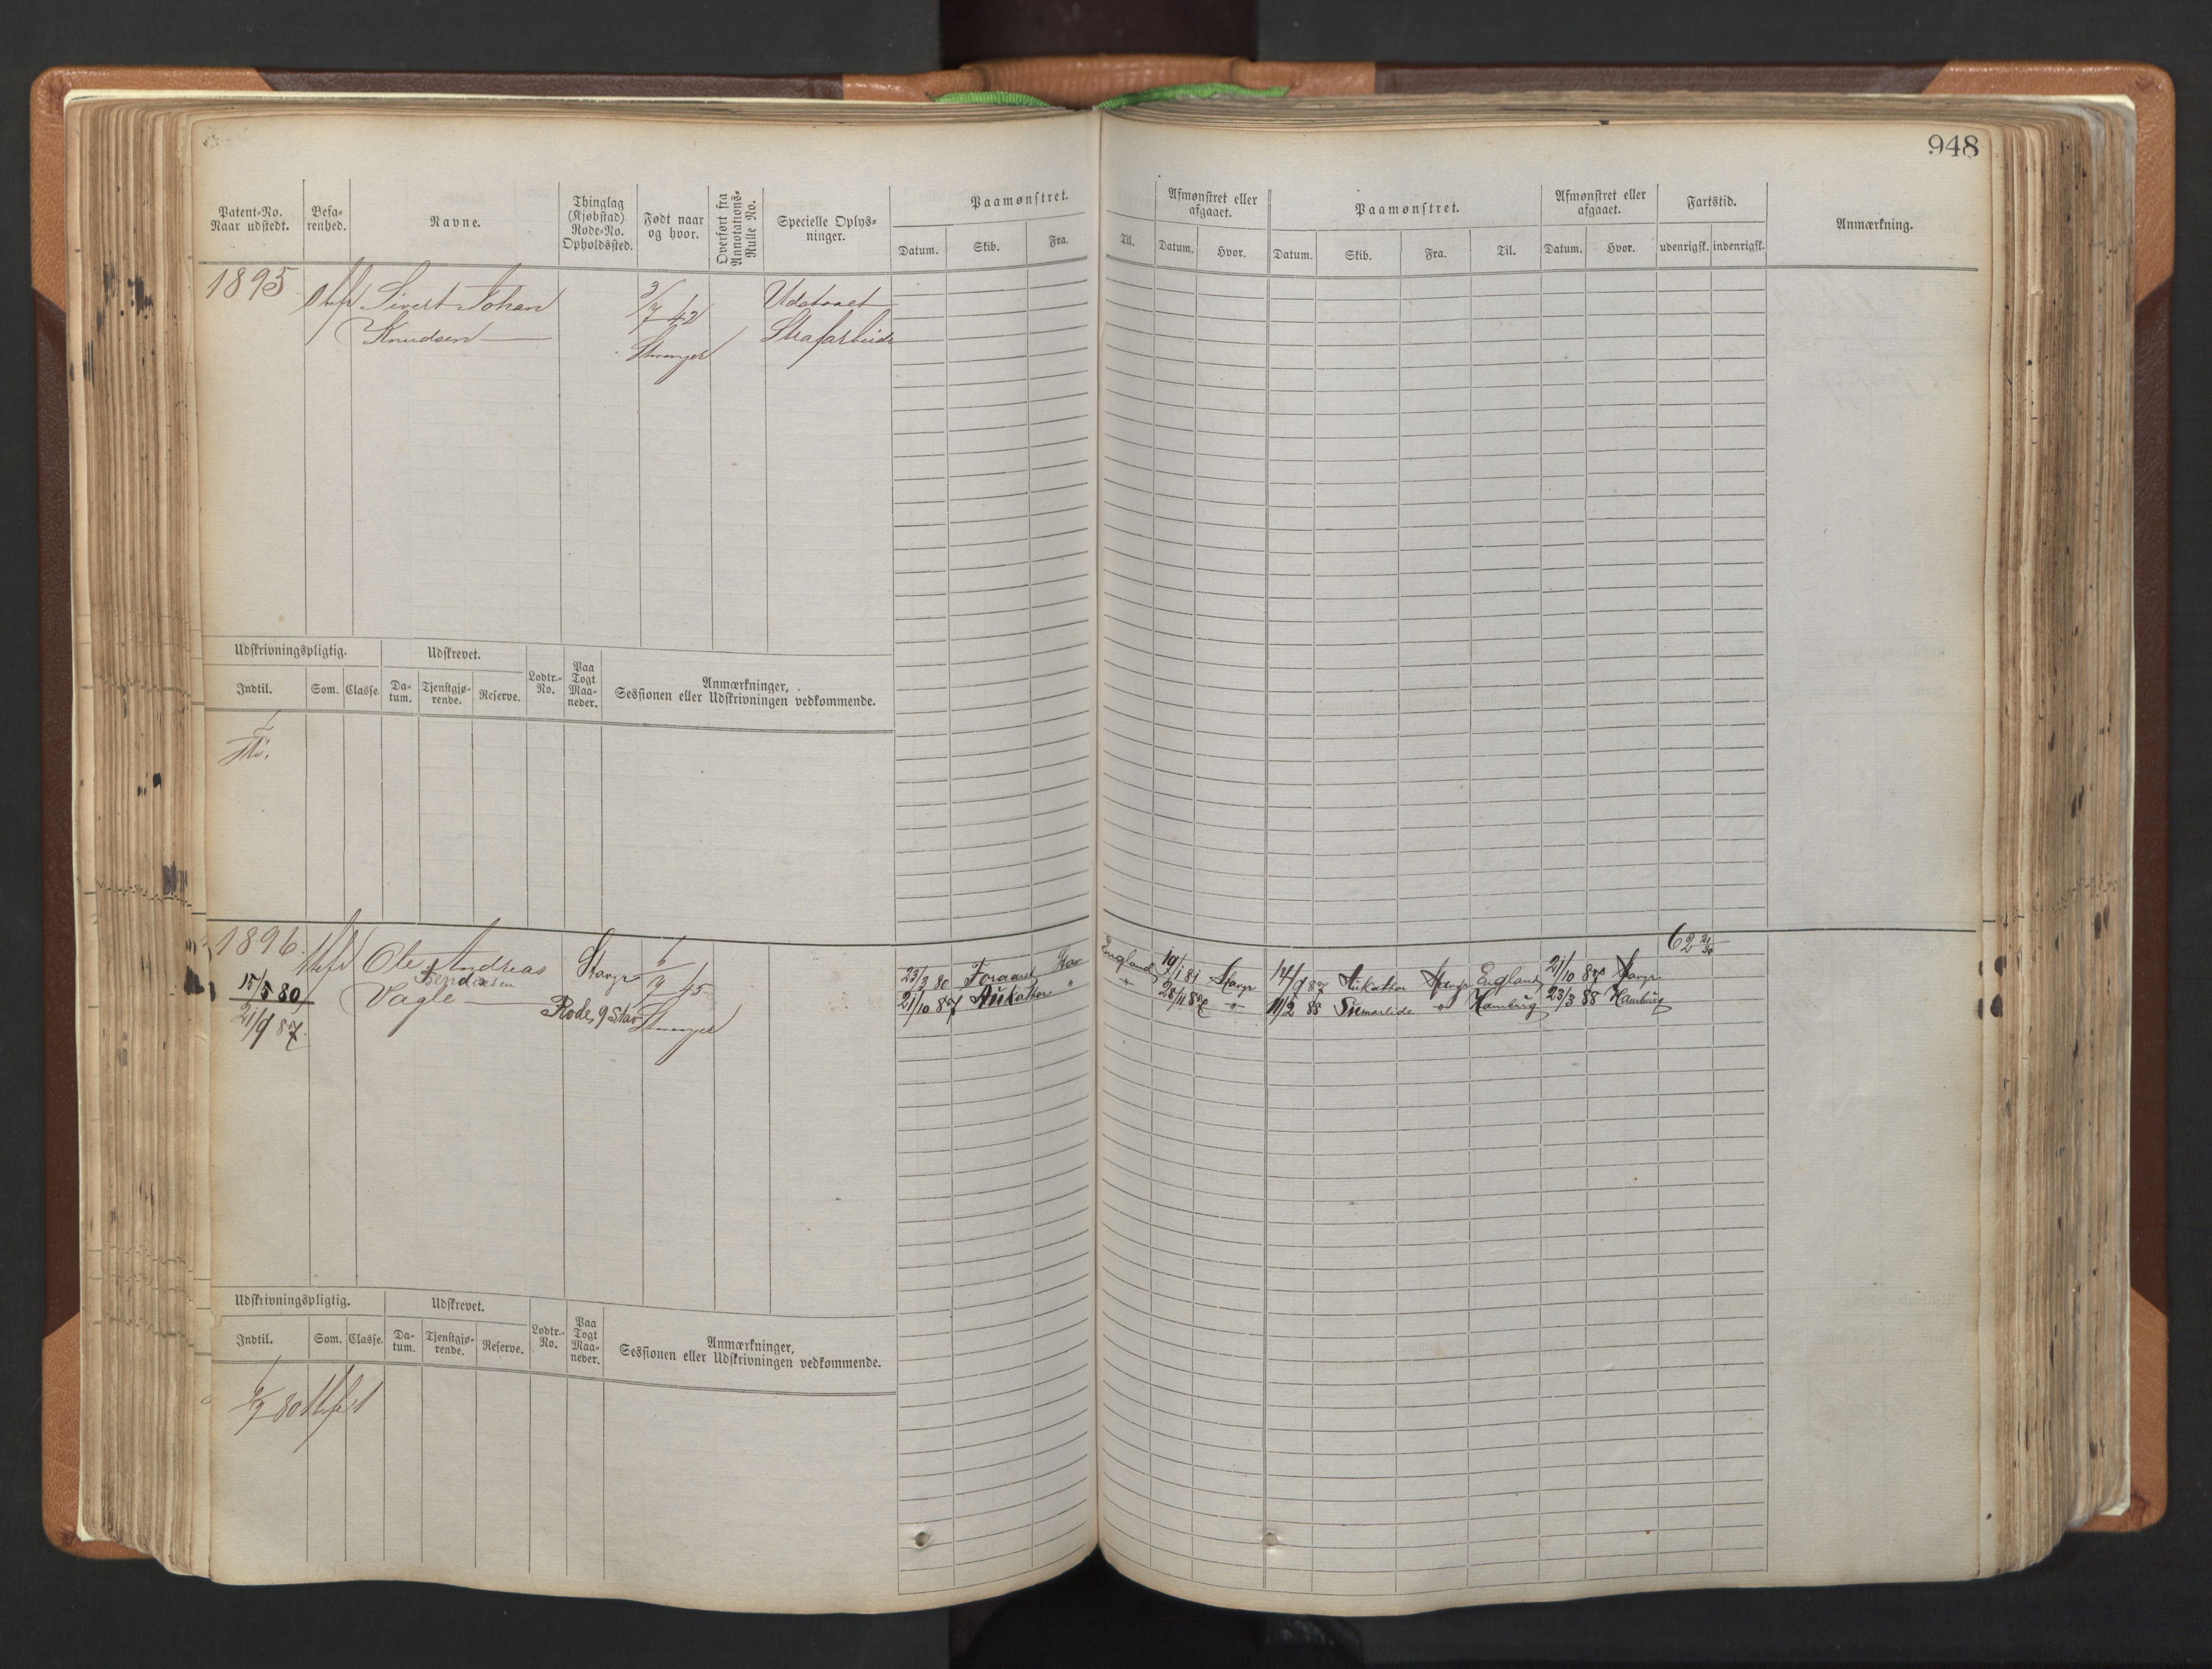 948
Patent-No. Naar udstedt.
Befa-renhed.
Navne.
Thinglag (Kjøbstad) Rode-No. Opholdssted.
Født naar og hvor.
Overført fra Annotations-Rulle No.
Specielle Oplys-ninger.
Paamønstret.
Datum. Skib. Fra. Til.
Afmønstret eller afgaaet.
Datum. Hvor.
Paamønstret.
Datum. Skib. Fra. Til.
Afmønstret eller afgaaet.
Datum. Hvor.
Fartstid.
udenrigsk. indenrigsk.
Anmærkning.
1895 Sivert Johan 3/7 42 Udstaaet
Knudsen Stavanger Strafarbeide
Udskrivningspligtig. Udskrevet. Lodtr.-No. Paa Togt Maa-neder. Anmærkninger, Sessionen eller Udskrivningen vedkommende.
Indtil. Som. Classe. Da-tum. Tjenstgjø-rende. Reserve.
1896 Ole Andreas Stavgr 6/9 45 23/3 80 Foraaret Stav England 19/1 81 Stavgr 14/9 87 Aukathor Stavgr England 21/10 87 Stavgr 62 21/30
15/5 80 Bendixsen 21/10 87 Aukathor " " 28/11 87 " 11/2 88 Sumarlide " Hamburg 23/3 88 Hamburg
Vagle Rode 9 Stav Stavanger
21/9 87
Udskrivningspligtig. Udskrevet. Lodtr.-No. Paa Togt Maa-neder. Anmærkninger, Sessionen eller Udskrivningen vedkommende.
Indtil. Som. Classe. Da-tum. Tjenstgjø-rende. Reserve.
80 1